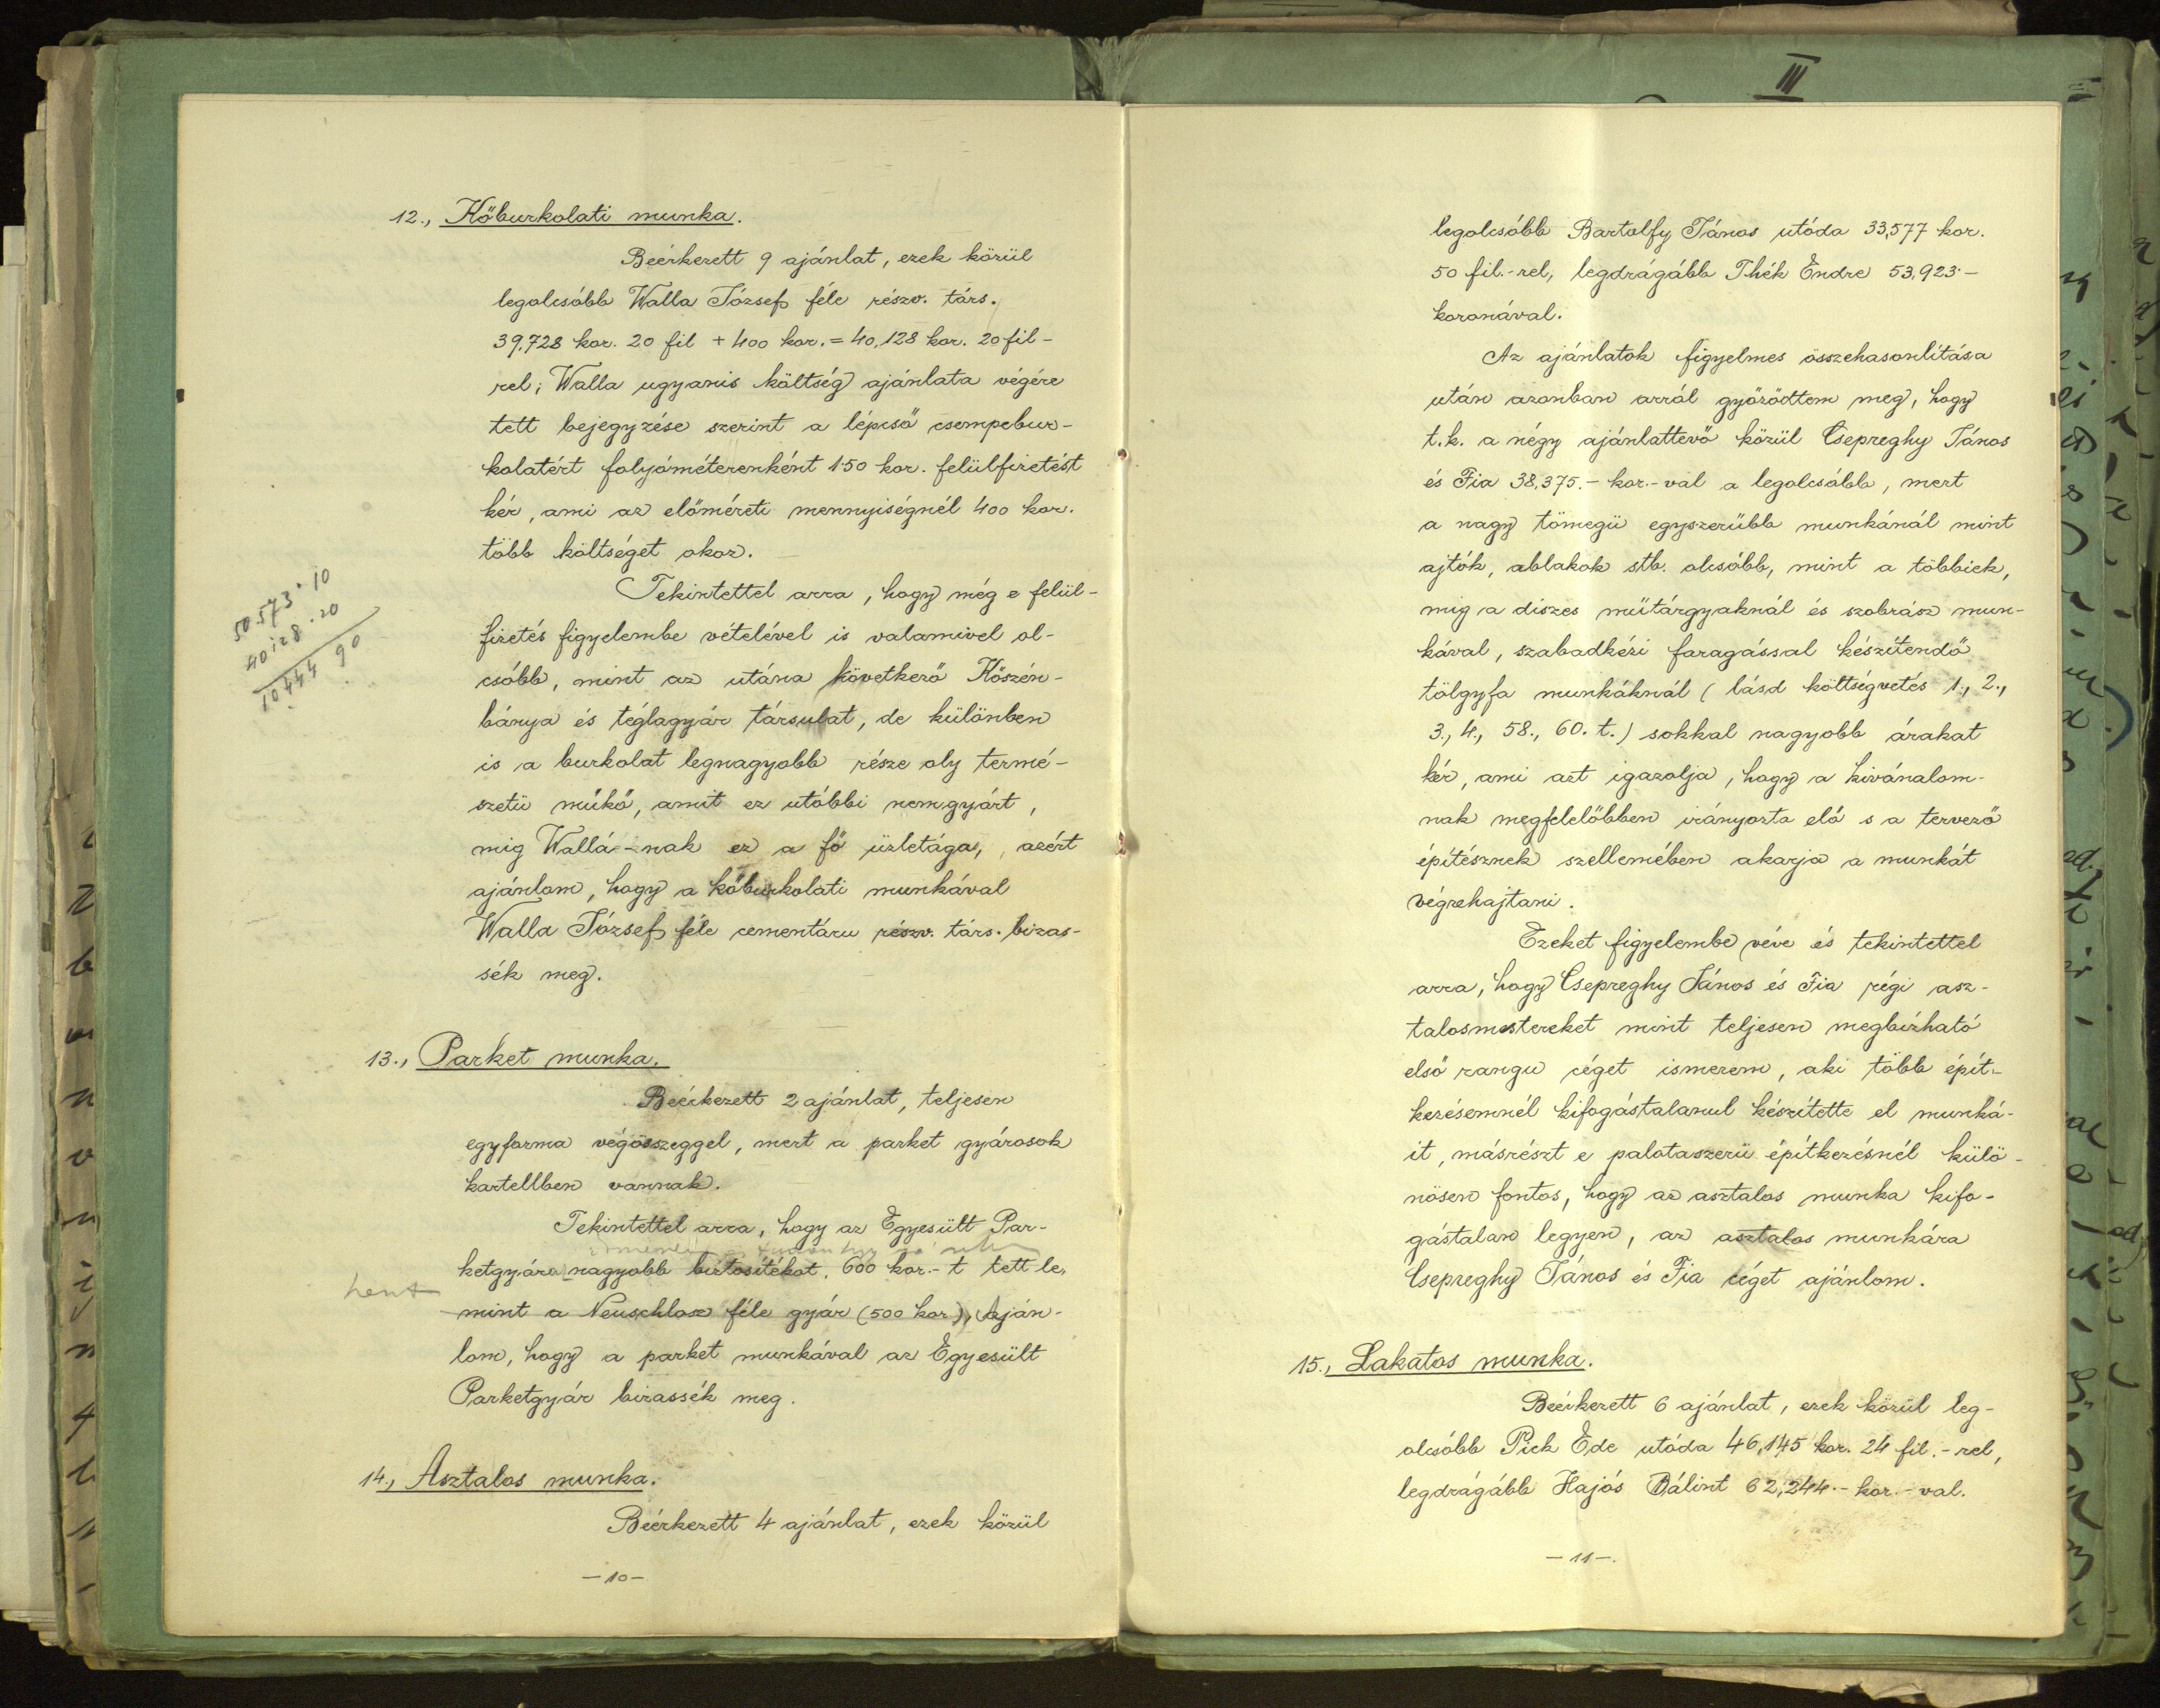 12., Kőburkolati munka.
Beérkezett 9 ajánlat, ezek közül
legolcsóbb Walla József féle részv. társ.
39,728 kor. 20 fil + 400 kor. = 40,128 kor. 20 fil-
rel; Walla ugyanis költség ajánlata végére
tett bejegyzése szerint a lépcső csempebur-
kolatért folyóméterenként 1·50 kor. felülfizetést
kér, ami az előméreti mennyiségnél 400 kor.
több költséget okoz.
Tekintettel arra, hogy még e felül-
fizetés figyelembe vételével is valamivel ol-
csóbb, mint az utána következő Kőszén-
bánya és téglagyár társulat, de különben
is a burkolat legnagyobb része oly termé-
szetü műkő, amit ez utóbbi nem gyárt,
mig Wallá-nak ez a fő üzletága, azért
ajánlom, hogy a kőburkolati munkával
Walla József féle cementáru részv. társ. bizas-
sék meg.
50.573·10
40128·20
10444 90
13., Parket munka.
Beérkezett 2 ajánlat, teljesen
egyforma végösszeggel, mert a parket gyárosok
kartellben vannak.
Tekintettel arra, hogy az Egyesült Par-
ketgyára nagyobb biztosítékot, 600 kor.-t tett le,
mint a Neuschloss féle gyár (500 kor), aján-
lom, hogy a parket munkával az Egyesült
Parketgyár bizassék meg.
14., Asztalos munka.
Beérkezett 4 ajánlat, ezek közül
-10-
III
legolcsóbb Bartolfy János utóda 33,577 kor.
50 fil.-rel, legdrágább Thék Endre 53,923·-
koronával.
Az ajánlatok figyelmes összehasonlítása
után azonban arról győződtem meg, hogy
t.k. a négy ajánlattevő közül Csepreghy János
és Fia 38,375.- kor.-val a legolcsóbb, mert
a nagy tömegü egyszerübb munkánál mint
ajtók, ablakok stb. olcsóbb, mint a többiek,
mig a diszes műtárgyaknál és szobrász mun-
kával, szabadkézi faragással készítendő
tölgyfa munkáknál (lásd költségvetés 1., 2.,
3., 4., 58., 60. t.) sokkal nagyobb árakat
kér, ami azt igazolja, hogy a kivánalom-
nak megfelelőbben irányozta elő s a tervező
építésznek szellemében akarja a munkát
végrehajtani.
Ezeket figyelembe véve és tekintettel
arra, hogy Csepreghy János és Fia régi asz-
talosmestereket mint teljesen megbízható
első rangu céget ismerem, aki több épít-
kezésemnél kifogástalanul készítette el munká-
it, másrészt e palotaszerü építkezésnél külö-
nösen fontos, hogy az asztalos munka kifo-
gástalan legyen, az asztalos munkára
Csepreghy János és Fia céget ajánlom.
15., Lakatos munka.
Beérkezett 6 ajánlat, ezek közül leg-
olcsóbb Pick Ede utóda 46,145 kor. 24 fil.-rel,
legdrágább Hajós Bálint 62,244.- kor.-val.
-11-.